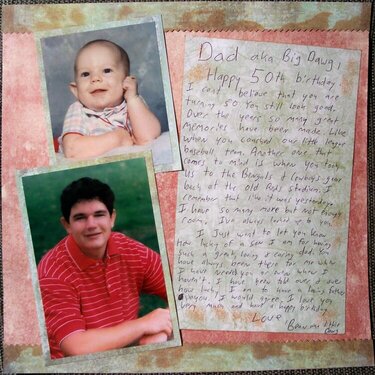 Dad aka Big Dawg,
Happy 50th birthday
I cant believe that you are
turning 50. You still look good.
Over the years so many great
memories have been made. Like
when you coached our little league
baseball team. Another one that
comes to mind is when you took
us to the Bengals & Cowboys game
back at the old Reds stadium. I
remember that like it was yesterday.
I have so many more but not enough
room. I've always looked up to you.
I just want to let you know
how lucky of a son I am for having
such a great, loving & caring dad. You
have always been there for me when
I have needed you or even when I
haven't. I have been told over & over
how lucky I am to have a father
I would agree. I love you
very much and have a happy birthday
Love